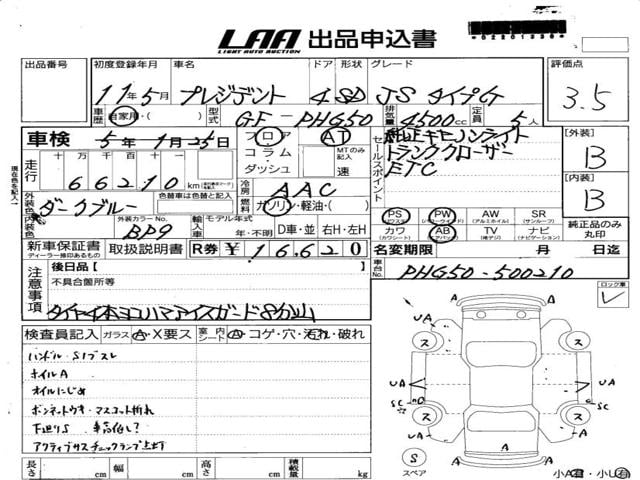 LAA 出品申込書
LIGHT AUTO AUCTION
出品番号 初度登録年月 車名 ドア 形状 グレード 評価点
11年5月 プレジデント 4 SD JS タイプG 3.5
車歴 自家用・( ) 型式 GF-PHG50 排気量 4500cc 定員 5人
車検 5年1月25日 フロア AT
コラム MTのみ記入
ダッシュ 速
走行 十万千百十
66210km
冷房 AAC
外装色 ダークブルー 色替車は色替と記入 燃料 ガソリン・軽油・( )
内装色 外装カラーNo. BP9 輸入車 モデル年式 年・不明 D車・並 右H・左H
セールスポイント 純正キセノンライト
トランククローザー
ETC
[外装] B
[内装] B
PS PW AW SR
(パワステ) (パワーウインド) (アルミホイル) (サンルーフ)
カワ AB TV ナビ 純正品のみ丸印
(カワシート) (エアバック) (地デジ) (ナビゲーション)
新車保証書 取扱説明書 R券 ¥16620 名変期限 月 日迄
ディーラー捺印あるもの
車台No. PHG50-500210
注意事項 後日品[ ]
不具合箇所等
タイヤ4本ヨコハマアイスガード8分山
ロック車
検査員記入 ガラス A・X要ス 室内シート A・コゲ・穴・汚れ・破れ
ハンドル・S1ブスレ
ホイルA
オイルにじみ
ボンネットウキ・マスコット折れ
下廻りS 車高低し?
アクティブサスチェックランプ点灯
長さ cm 幅 cm 高さ cm 積載量 kg
A A A
ス ス
UA UA
SC SC
ス ス
A A A
S
スペア
小A有・小U有
現在色を記入